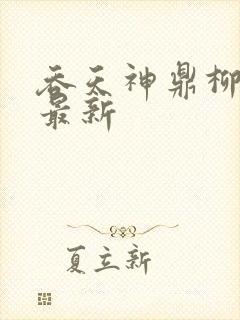 吞天神鼎柳
最新
夏立新